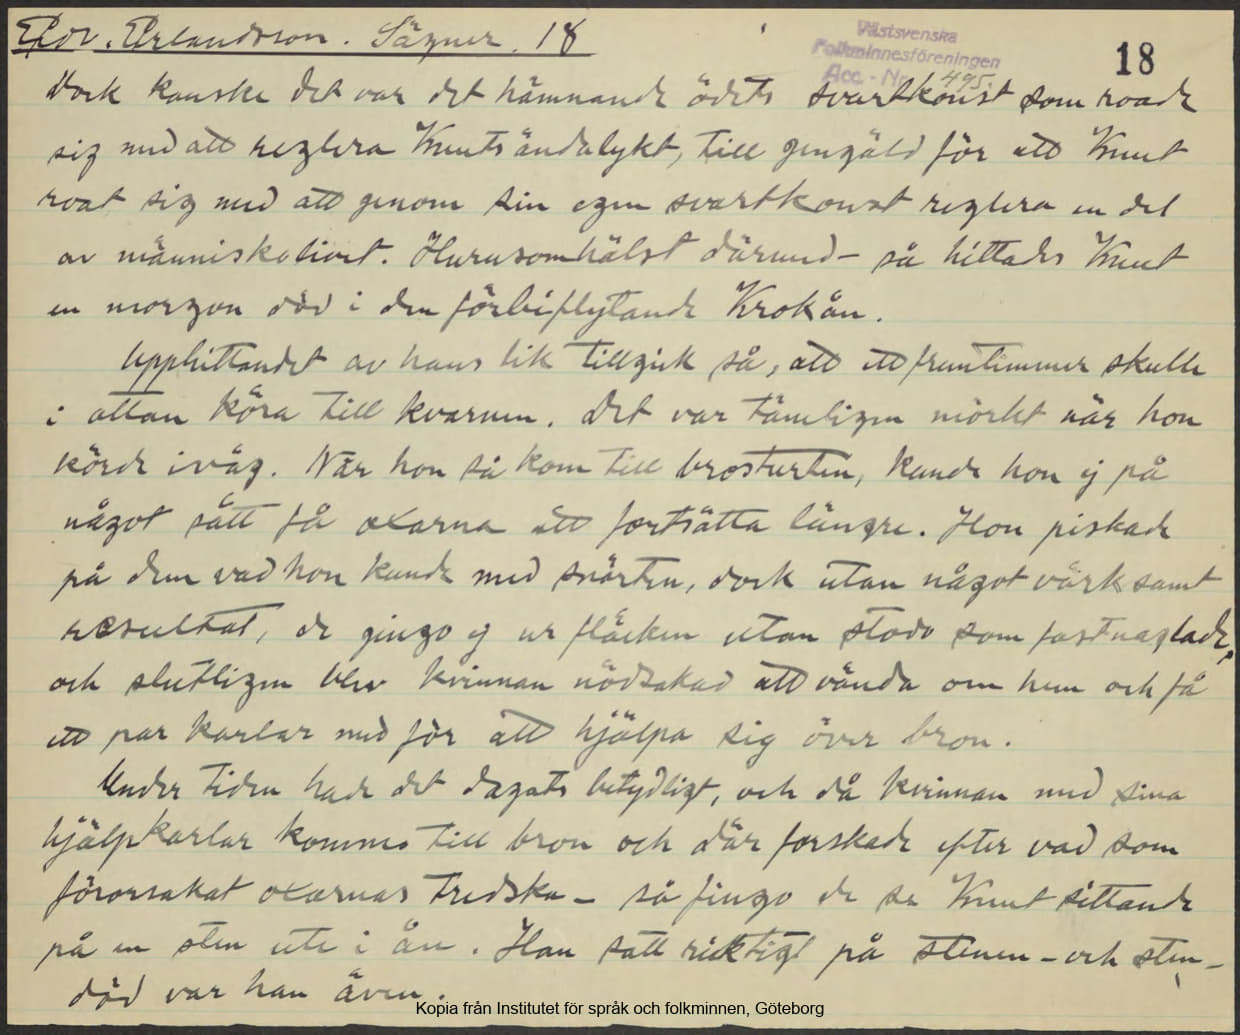 Edv. Erlandsson. Sägner. 18
Västsvenska
Folkminnesföreningen
Acc. - Nr. 495.
18
Dock kanske det var det hämnande ödets svartkonst som roade
sig med att reglera Knuts ändalykt, till gengäld för att Knut
roat sig med att genom sin egen svartkonst reglera en del
av människolivet. Hurusomhälst därmed – så hittades Knut
en morgon död i den förbiflytande Krokån.
Upphittandet av hans lik tillgick så, att ett fruntimmer skulle
i ottan köra till kvarnen. Det var tämligen mörkt när hon
körde iväg. När hon så kom till brosturten, kunde hon ej på
något sätt få oxarna att fortsätta längre. Hon piskade
på dem vad hon kunde med snärten, dock utan något värksamt
resultat, de gingo ej ur fläcken utan stodo som fastnaglade,
och slutligen blev kvinnan nödsakad att vända om hem och få
ett par karlar med för att hjälpa sig över bron.
Under tiden hade det dagats betydligt, och då kvinnan med sina
hjälpkarlar kommo till bron och där forskade efter vad som
förorsakat oxarnas tredska – så fingo de se Knut sittande
på en sten ute i ån. Han satt riktigt på stenen – och sten-
död var han även.
Kopia från Institutet för språk och folkminnen, Göteborg